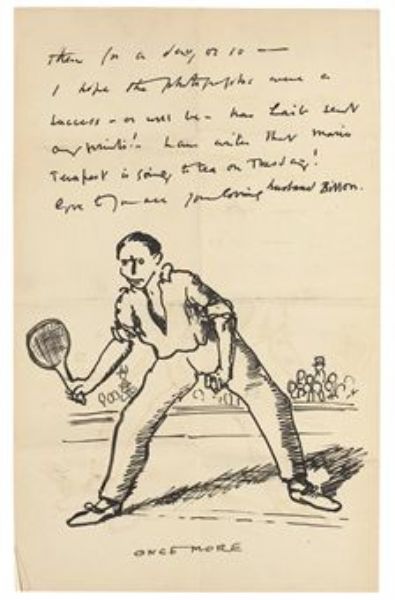 then for a day or so —
I hope the photographs were a
success – or will be – has Laib sent
any prints? – Laura writes that Marie
Tempest is going to tea on Tuesday!
Love to you all your loving husband
ONCE MORE